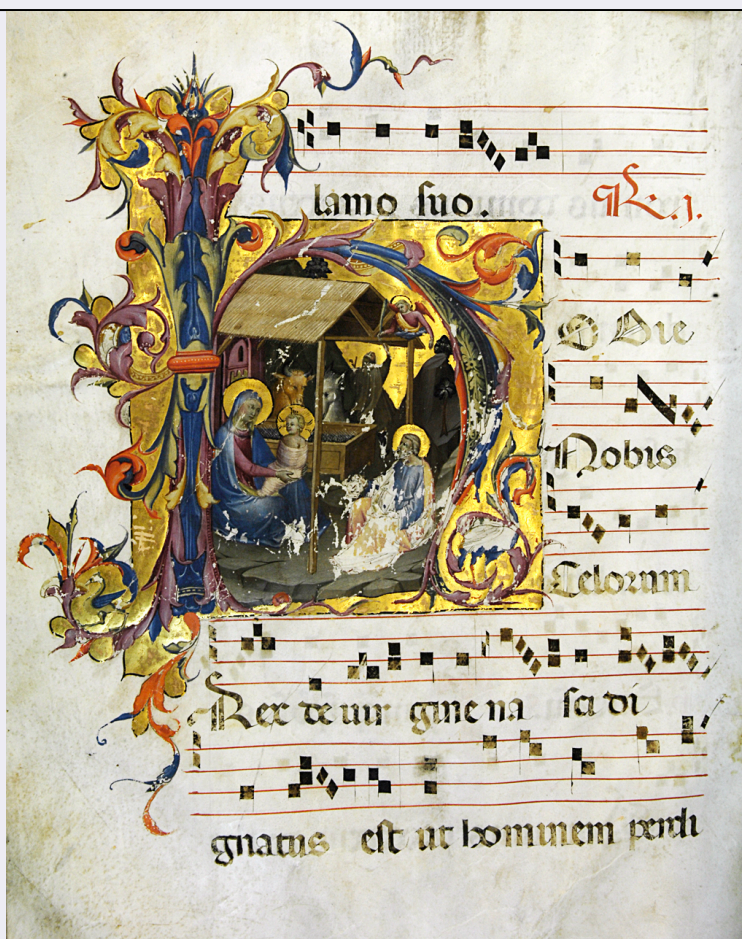 lamo suo. R. 1.
O Die
Nobis
Celorum
Rex de uir gine na sci di
gnatus est ut hominem perdi